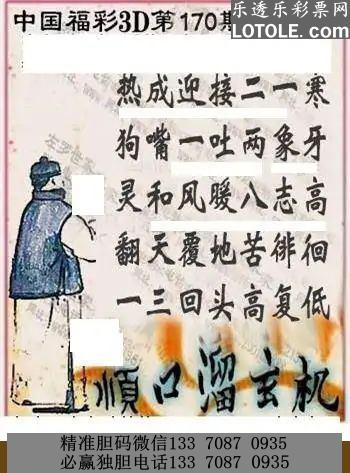 中国福彩3D第170期
乐透乐彩票网
LOTOLE.COM
热成迎接二一寒
狗嘴一吐两象牙
灵和风暖八志高
翻天覆地苦徘徊
一三回头高复低
顺口溜玄机
精准胆码微信133 7087 0935
必赢独胆电话133 7087 0935